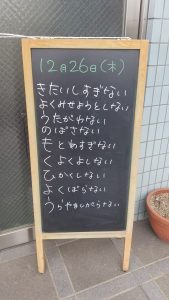 12月26日(木)
きたいしすぎない
よくみせようとしない
うたがわない
のばさない
もとめすぎない
くよくよしない
ひかくしない
よくばらない
うらやましがらない